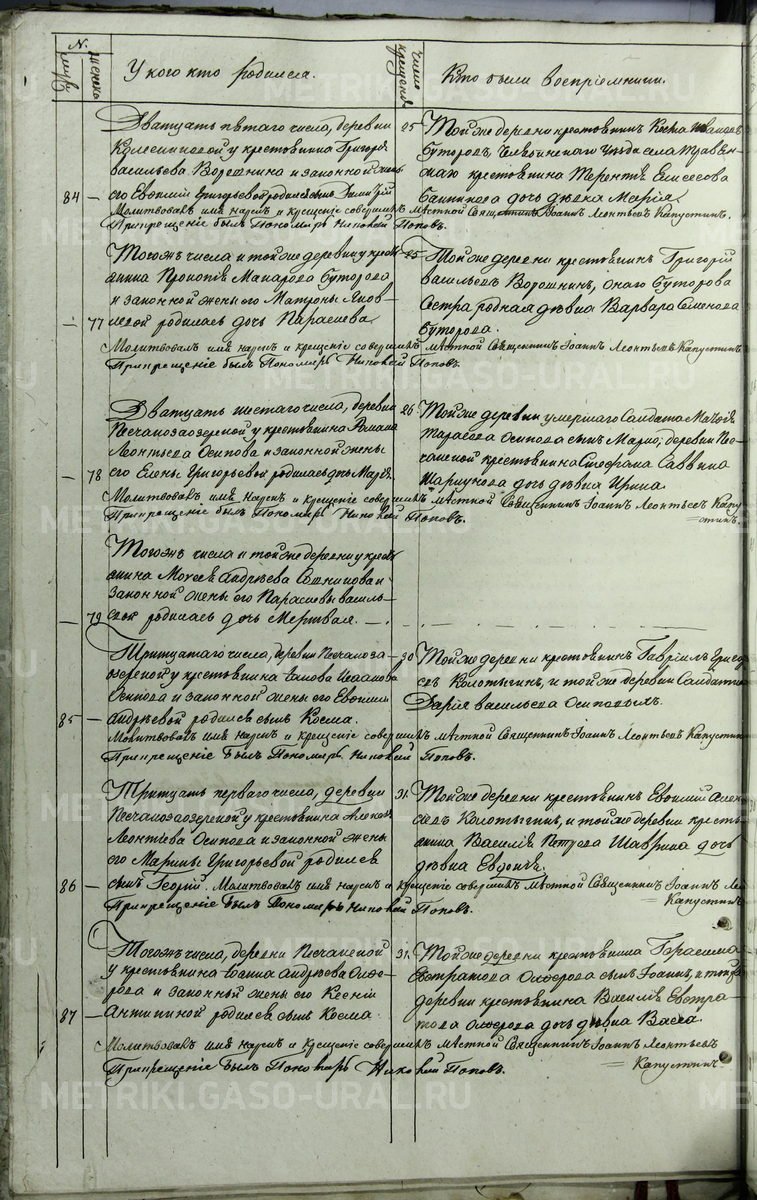 N.
муж.
женск.
У кого кто родился.
Число крещенія
Кто были воспріемники.
Дватцать пятаго числа, деревни
Колесниковой у крестьянина Григорья
васильева Ворошнина и законной жены
84 — его Евѳиміи Григорьевой родился сынъ Димитрій
Молитвовалъ имя нарекъ и крещеніе совершилъ мѣстной Священникъ Іоаннъ Леонтьевъ Капустинъ.
Прикрещеніе былъ Пономарь Попов.
25 Той же деревни крестьянинъ Козма
Бутородъ, уѣзда села
крестьянина Терентія Елисеева
дочь дѣвка Марія.
Тогожъ числа и той же деревни у кресть
янина Прокопія Макарова Буторова
и законной жены его Матроны Яков-
— 77 левой родилась дочь Параскева
Молитвовалъ имя нарекъ и крещеніе совершилъ мѣстной Священникъ Іоаннъ Леонтьевъ Капустинъ
Прикрещеніе былъ Пономарь Поповъ.
25 Той же деревни крестьянинъ Григорій
васильевъ Ворошнинъ, онаго Буторова
Сестра родная дѣвка Варвара Семенова
Буторова.
Дватцать шестаго числа, деревни
Песчаноозерской у крестьянина Романа
Леонтьева Осипова и законной жены
— 78 его Елены Григорьевой родилась дочь Марія
Молитвовалъ имя нарекъ и крещеніе совершилъ мѣстной Священникъ Іоаннъ Леонтьевъ Капу
стинъ.
Прикрещеніе былъ Пономарь Поповъ.
26 Той же деревни умершаго Солдата
Тарасова Осипова сынъ деревни Пес
чанской крестьянина Стефана Саввина
дочь дѣвка Ирина.
Тогожъ числа и той же деревни у кресть
янина Моисея Андрѣева и
законной жены его Параскевы василь-
— 79 евой родилась дочь Мертвая.
Тритцатаго числа, деревни Песчаноо
зерской у крестьянина
Осипова и законной жены его Евѳиміи
85 — андрѣевой родился сынъ Косма.
Молитвовалъ имя нарекъ и крещеніе совершилъ мѣстной Священникъ Іоаннъ Леонтьевъ Капустинъ
Прикрещеніе былъ Пономарь Поповъ.
30 Той же деревни крестьянинъ Гавріилъ
Колотыгинъ, и той же деревни Солдатка
Дарія васильева Осиповыхъ.
Тритцать перваго числа, деревни
Песчаноозерской у крестьянина
Леонтіева Осипова и законной жены
его Марины Григорьевой родился
86 — сынъ Георгій. Молитвовалъ имя нарекъ и крещеніе совершилъ мѣстной Священникъ Іоаннъ Лео
Капустинъ
Прикрещеніе былъ Пономарь Поповъ.
31. Той же деревни крестьянинъ Евѳимій Алек
сѣевъ Колотыгинъ, и той же деревни кресть
янина Василія Петрова Шаврина дочь
дѣвка Евдокія.
Тогожъ числа, деревни Песчанской
у крестьянина Іоанна Андрѣева
и законной жены его Ксеніи
87 — Антипиной родился сынъ Косма.
Молитвовалъ имя нарекъ и крещеніе совершилъ мѣстной Священникъ Іоаннъ Леонтьевъ
Капустинъ
Прикрещеніе былъ Пономарь Поповъ.
31. Той же деревни крестьянина Герасима
Евстратова сынъ Іоаннъ, и той же
деревни крестьянина Василія Евстра-
това дочь дѣвка Васса.
METRIKI.GASO-URAL.RU